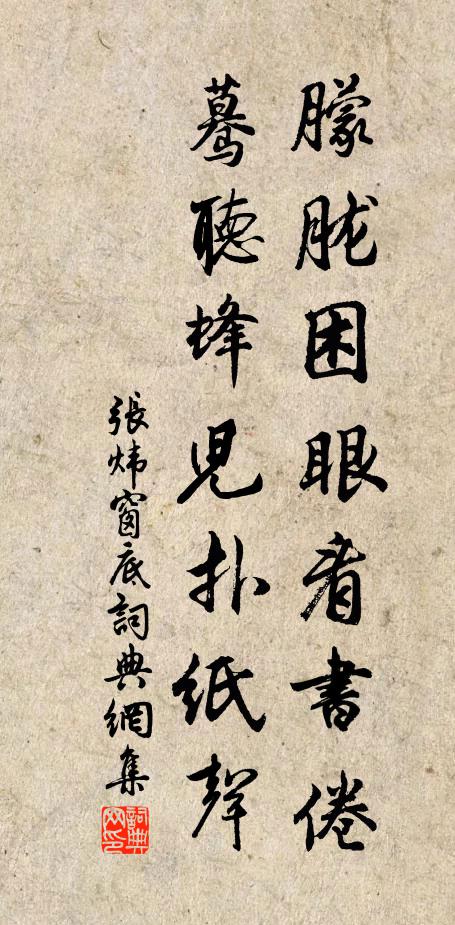 朦胧困眼看書倦
驀聽蜂兒扑紙聲
張炜窗底詞典網集
詞典网印